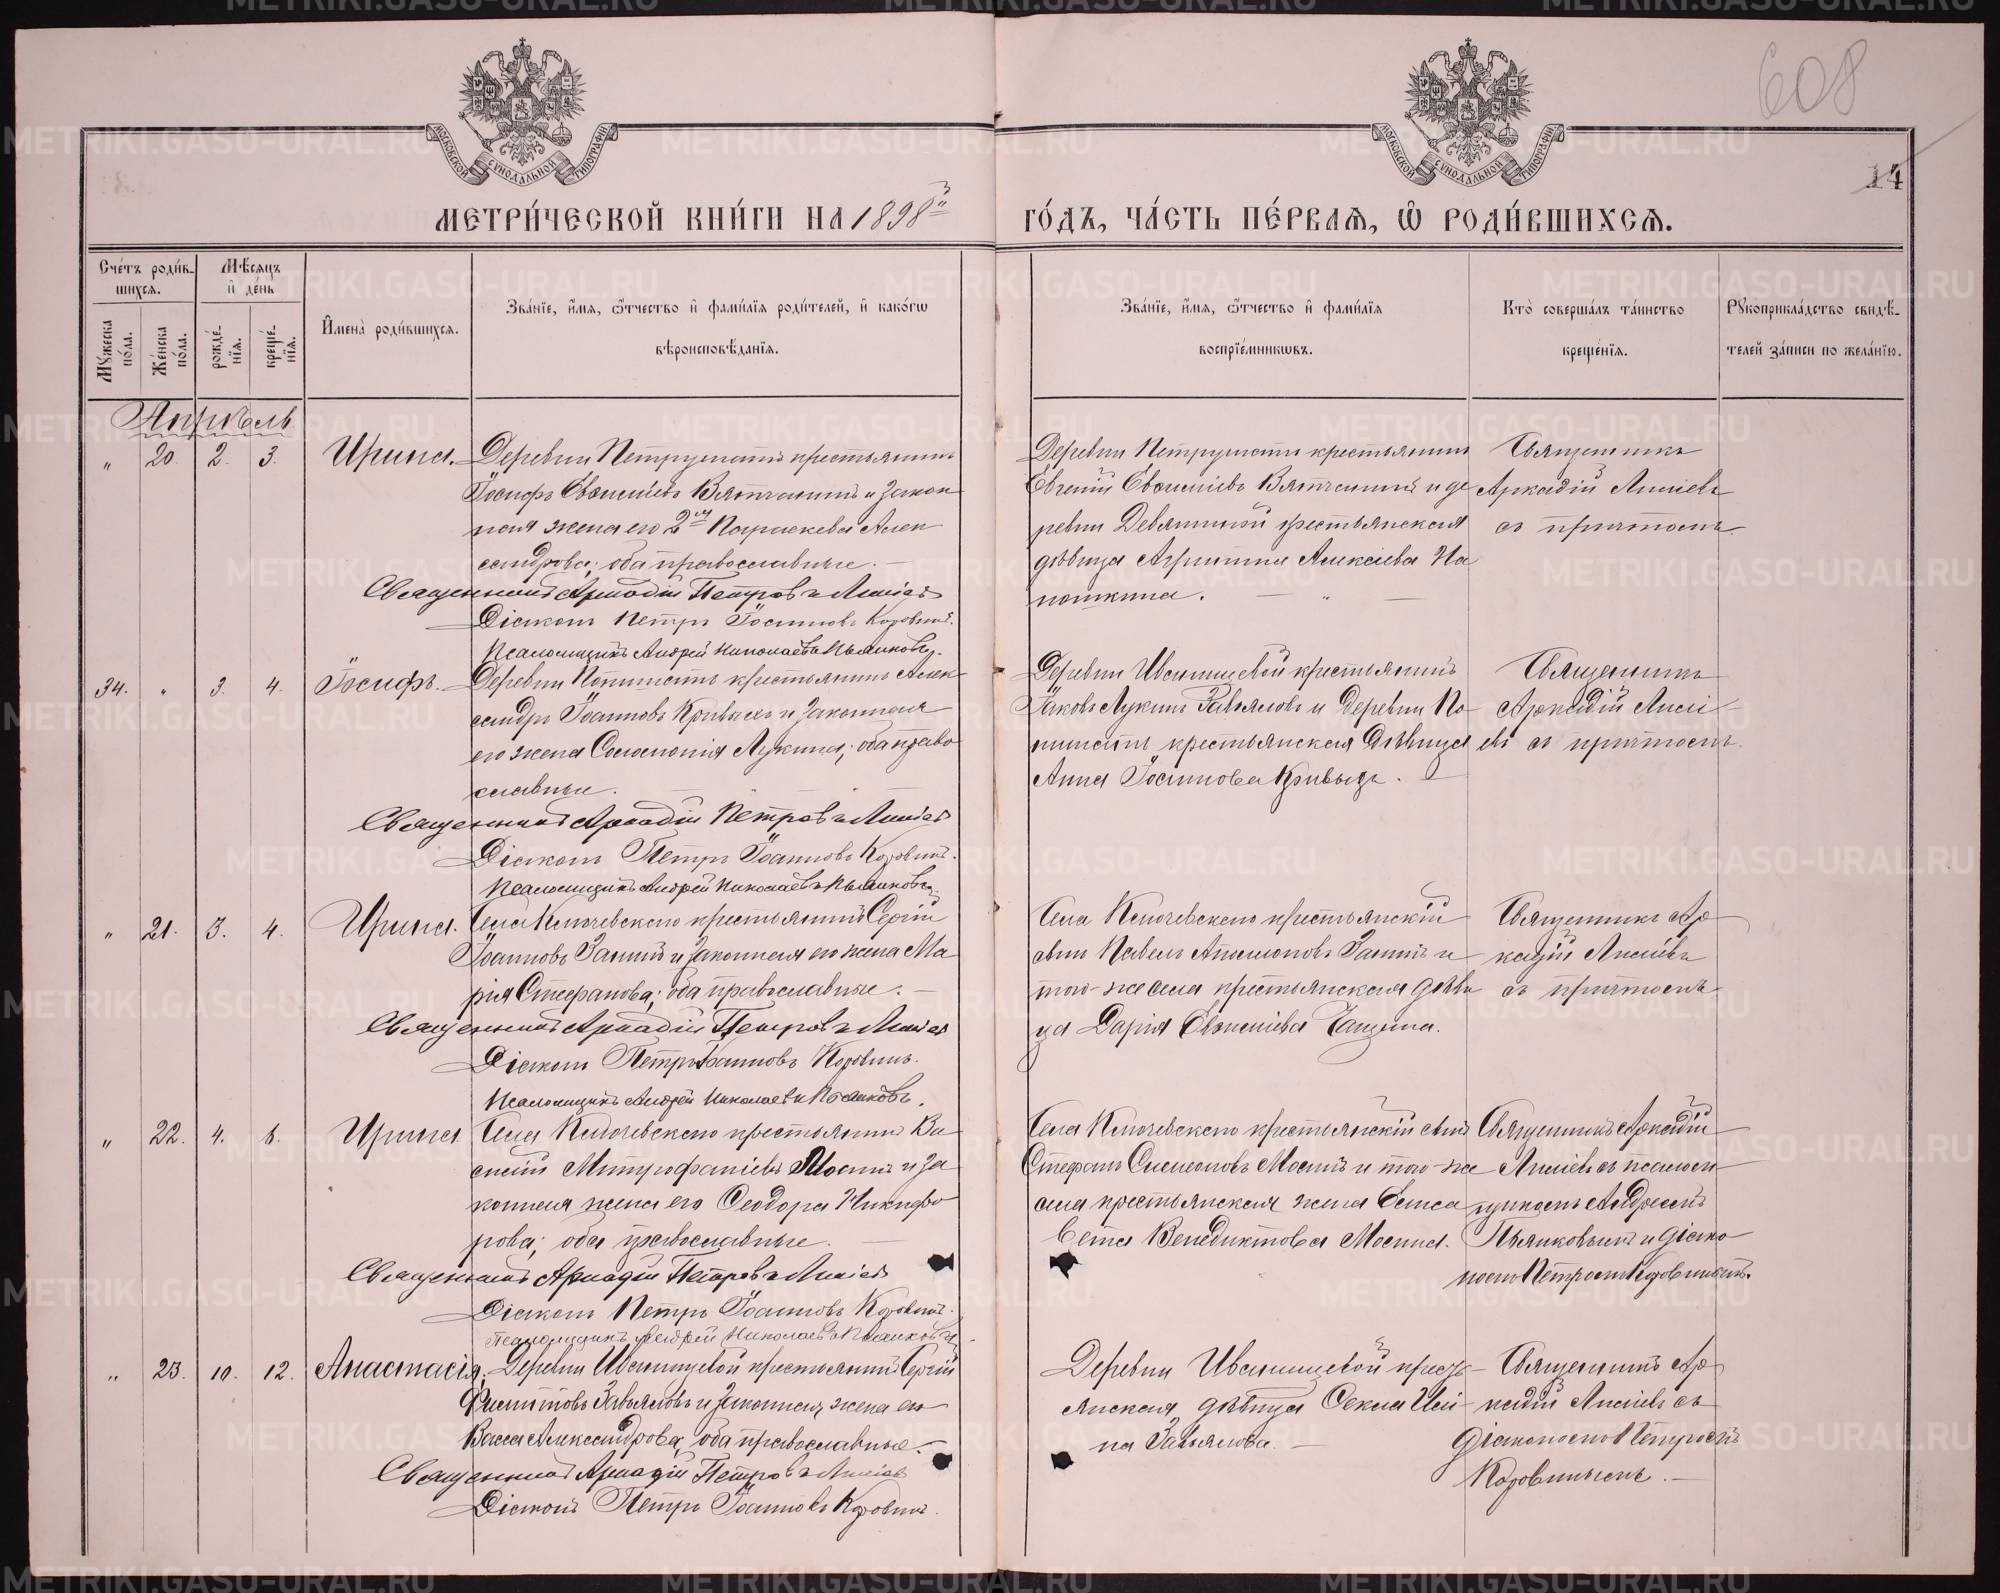 608
14
МОСКОВСКОЙ СѴНОДАЛЬНОЙ ТИПОГРАФІИ
МОСКОВСКОЙ СѴНОДАЛЬНОЙ ТИПОГРАФІИ
МЕТРИ́ЧЕСКОЙ КНИ́ГИ НА 1898й ГО́ДЪ, ЧА́СТЬ ПЕ́РВАѦ, Ѽ РОДИ́ВШИХСѦ.
Сче́тъ роди́в-
шихсѧ.
Мѣ́сѧцъ
и҆ де́нь
Мꙋ́жеска по́ла.
Же́нска по́ла.
рожде́-
нїѧ.
креще́-
нїѧ.
И҆мена̀ роди́вшихсѧ.
Зва́нїе, и҆́мѧ, ѻ҆́тчество и҆ фами́лїѧ роди́телей, и҆ како́гѡ
вѣроисповѣ́данїѧ.
Зва́нїе, и҆́мѧ, ѻ҆́тчество и҆ фами́лїѧ
воспрїе́мникѡвъ.
Кто̀ соверша́лъ та́инство
креще́нїѧ.
Рꙋкоприкла́дство свидѣ́-
телей за́писи по жела́нїю.
Апрѣль
" 20. 2. 3. Ирина. Деревни Петрушатъ крестьянинъ
Іосифъ Евѳиміевъ Вятчанинъ и закон
ная жена его 2я Параскева Алек
сандрова; оба православные.
Священникъ Аркадій Петровъ
Діаконъ Петръ Іоанновъ Коровинъ.
Псаломщикъ Андрей Николаевъ Пьянковъ.
Деревни Петрушаты крестьянинъ
Евгеній Евѳиміевъ Вятчанинъ и де
ревни Девяткиной крестьянская
дѣвица Агриппина Алексіева Па
Священникъ
Аркадій
съ причтомъ.
34. " 3. 4. Іосифъ. Деревни крестьянинъ Алек
сандръ Іоанновъ и законная
его жена Соломонія Лукина; оба право
славные.
Священникъ Аркадій Петровъ
Діаконъ Петръ Іоанновъ Коровинъ.
Псаломщикъ Андрей Николаевъ Пьянковъ.
Деревни крестьянинъ
Іаковъ Лукинъ Завьяловъ и деревни
крестьянская дѣвица
Анна Іоаннова
Священникъ
Аркадій
съ причтомъ.
" 21. 3. 4. Ирина. Села Ключевскаго крестьянинъ Сергій
Іоанновъ и законная его жена Ма
рія Стефанова; оба православные.
Священникъ Аркадій Петровъ
Діаконъ Петръ Іоанновъ Коровинъ.
Псаломщикъ Андрей Николаевъ Пьянковъ.
Села Ключевскаго крестьянскій
сынъ Павелъ и
того-же села крестьянская дѣви
ца Дарія Евѳиміева
Священникъ Ар
кадій
съ причтомъ
" 22. 4. 6. Ирина. Села Ключевскаго крестьянинъ Ва
силій Митрофаніевъ Мосинъ и за
конная жена его Ѳеодора Никифо
рова; оба православные.
Священникъ Аркадій Петровъ
Діаконъ Петръ Іоанновъ Коровинъ.
Псаломщикъ Андрей Николаевъ Пьянковъ
Села Ключевскаго крестьянскій сынъ
Стефанъ Симеоновъ Мосинъ и того-же
села крестьянская жена Елиса
вета Венедиктова Мосина.
Священникъ Аркадій
съ псаломъ
щикомъ Андреемъ
Пьянковымъ и діако
номъ Петромъ Коровинымъ.
" 23. 10. 12. Анастасія. Деревни крестьянинъ Сергій
Завьяловъ и законная жена его
Васса Александрова, оба православные.
Священникъ Аркадій Петровъ
Діаконъ Петръ Іоанновъ Коровинъ.
Деревни кресть-
янская дѣвица Ѳекла
Завьялова.
Священникъ Ар
кадій съ
діакономъ Петромъ
Коровинымъ.
METRIKI.GASO-URAL.RU